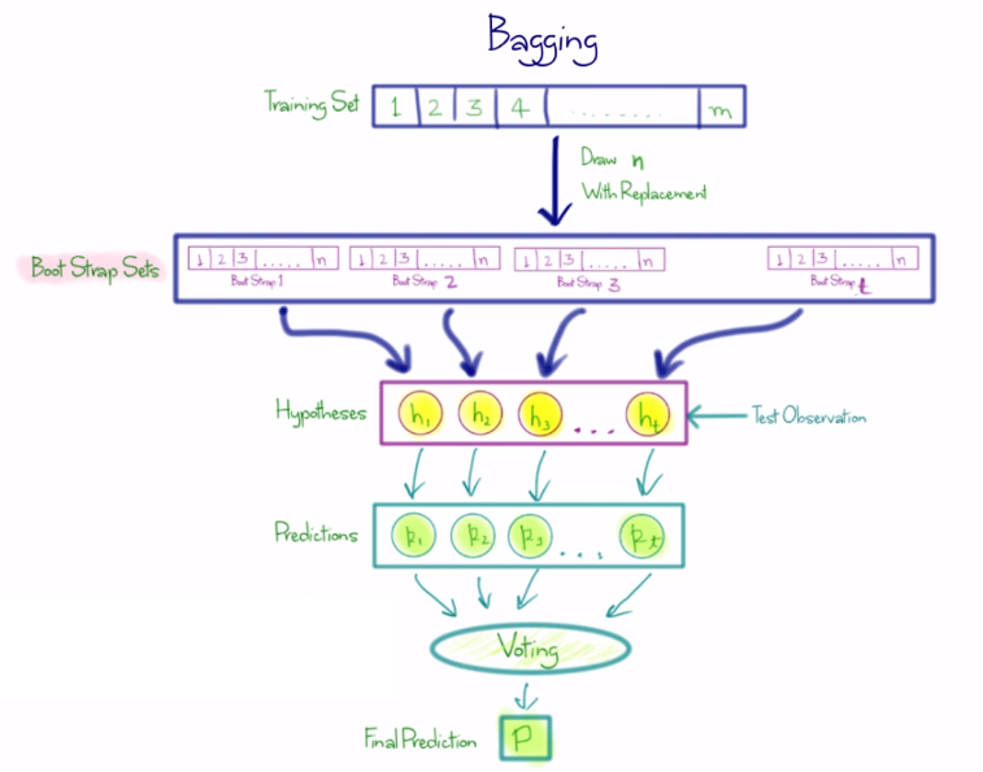 Bagging
Training Set 1 2 3 4 ......... m
Draw n
With Replacement
Boot Strap Sets
1 2 3 ..... n 1 2 3 ..... n 1 2 3 ..... n 1 2 3 ..... n
Boot Strap 1 Boot Strap 2 Boot Strap 3 Boot Strap t
Hypotheses h1 h2 h3 ... ht Test Observation
Predictions P1 P2 P3 ... Pt
Voting
Final Prediction P